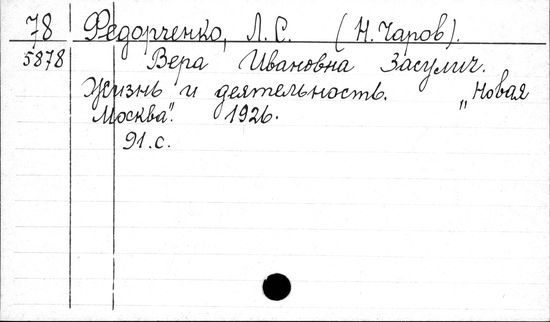 78 Федорченко, Л.С. (Н. Чаров).
5878 Вера Ивановна Засулич.
Жизнь и деятельность. „Новая
Москва". 1926.
91.с.